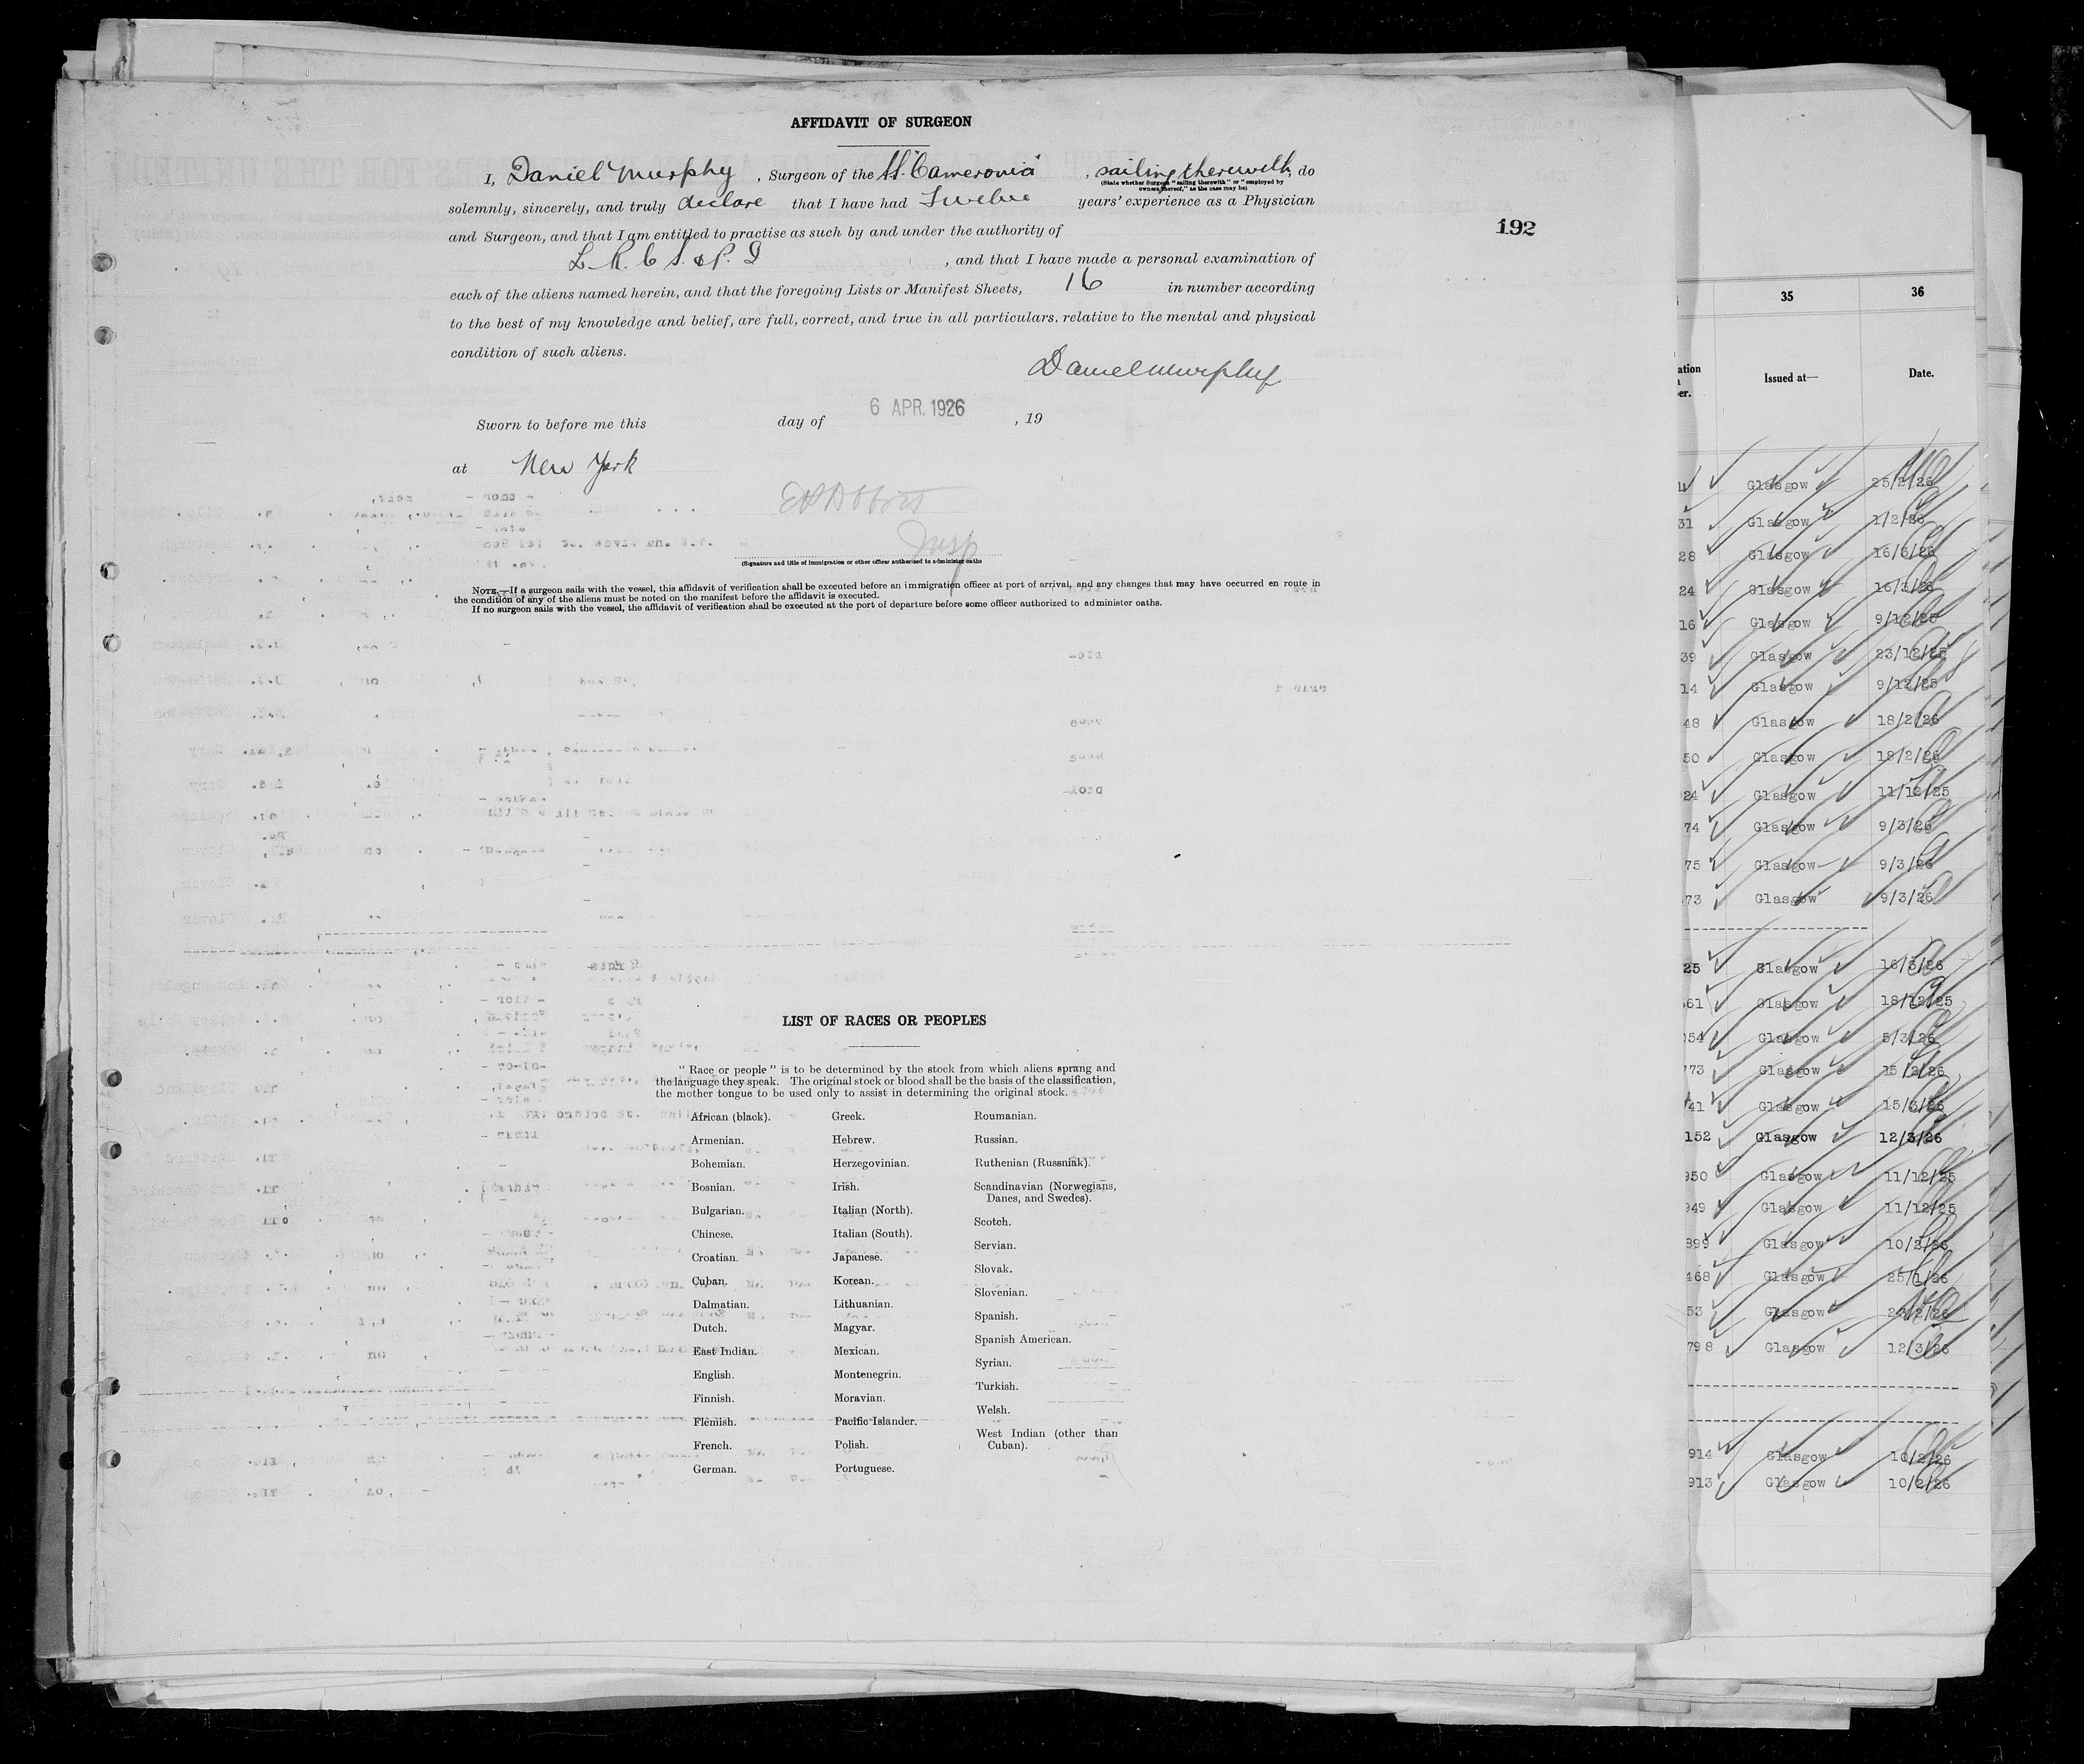 AFFIDAVIT OF SURGEON
I, Daniel Murphy, Surgeon of the SS. "Cameronia", sailing therewith, do
(State whether Surgeon "sailing therewith" or "employed by
owners thereof," as the case may be)
solemnly, sincerely, and truly declare that I have had Twelve years' experience as a Physician
192
and Surgeon, and that I am entitled to practise as such by and under the authority of
L. R. C S. & P. I, and that I have made a personal examination of
each of the aliens named herein, and that the foregoing Lists or Manifest Sheets, 16 in number according
to the best of my knowledge and belief, are full, correct, and true in all particulars. relative to the mental and physical
condition of such aliens.
Daniel Murphy
Sworn to before me this day of 6 APR. 1926, 19
at New York
Insp
(Signature and title of Immigration or other officer authorized to administer oaths
NOTE.—If a surgeon sails with the vessel, this affidavit of verification shall be executed before an immigration officer at port of arrival, and any changes that may have occurred en route in
the condition of any of the aliens must be noted on the manifest before the affidavit is executed.
If no surgeon sails with the vessel, the affidavit of verification shall be executed at the port of departure before some officer authorized to administer oaths.
LIST OF RACES OR PEOPLES
"Race or people" is to be determined by the stock from which aliens sprang and
the language they speak. The original stock or blood shall be the basis of the classification,
the mother tongue to be used only to assist in determining the original stock.
African (black).
Armenian.
Bohemian.
Bosnian.
Bulgarian.
Chinese.
Croatian.
Cuban.
Dalmatian.
Dutch.
East Indian.
English.
Finnish.
Flemish.
French.
German.
Greek.
Hebrew.
Herzegovinian.
Irish.
Italian (North).
Italian (South).
Japanese.
Korean.
Lithuanian.
Magyar.
Mexican.
Montenegrin.
Moravian.
Pacific Islander.
Polish.
Portuguese.
Roumanian.
Russian.
Ruthenian (Russniak).
Scandinavian (Norwegians,
Danes, and Swedes).
Scotch.
Servian.
Slovak.
Slovenian.
Spanish.
Spanish American.
Syrian.
Turkish.
Welsh.
West Indian (other than
Cuban).
35 36
Issued at— Date.
Glasgow 25/2/26
31 Glasgow 1/2/26
28 Glasgow 16/3/26
24 Glasgow 16/3/26
16 Glasgow 9/12/25
39 Glasgow 23/12/25
14 Glasgow 9/12/25
48 Glasgow 18/2/26
50 Glasgow 18/2/26
24 Glasgow 11/12/25
74 Glasgow 9/3/26
75 Glasgow 9/3/26
73 Glasgow 9/3/26
25 Glasgow 16/3/26
561 Glasgow 18/12/25
354 Glasgow 5/3/26
773 Glasgow 15/2/26
41 Glasgow 15/3/26
152 Glasgow 12/3/26
950 Glasgow 11/12/25
949 Glasgow 11/12/25
899 Glasgow 10/2/26
468 Glasgow 25/1/26
53 Glasgow
798 Glasgow 12/3/26
914 Glasgow 10/2/26
913 Glasgow 10/2/26